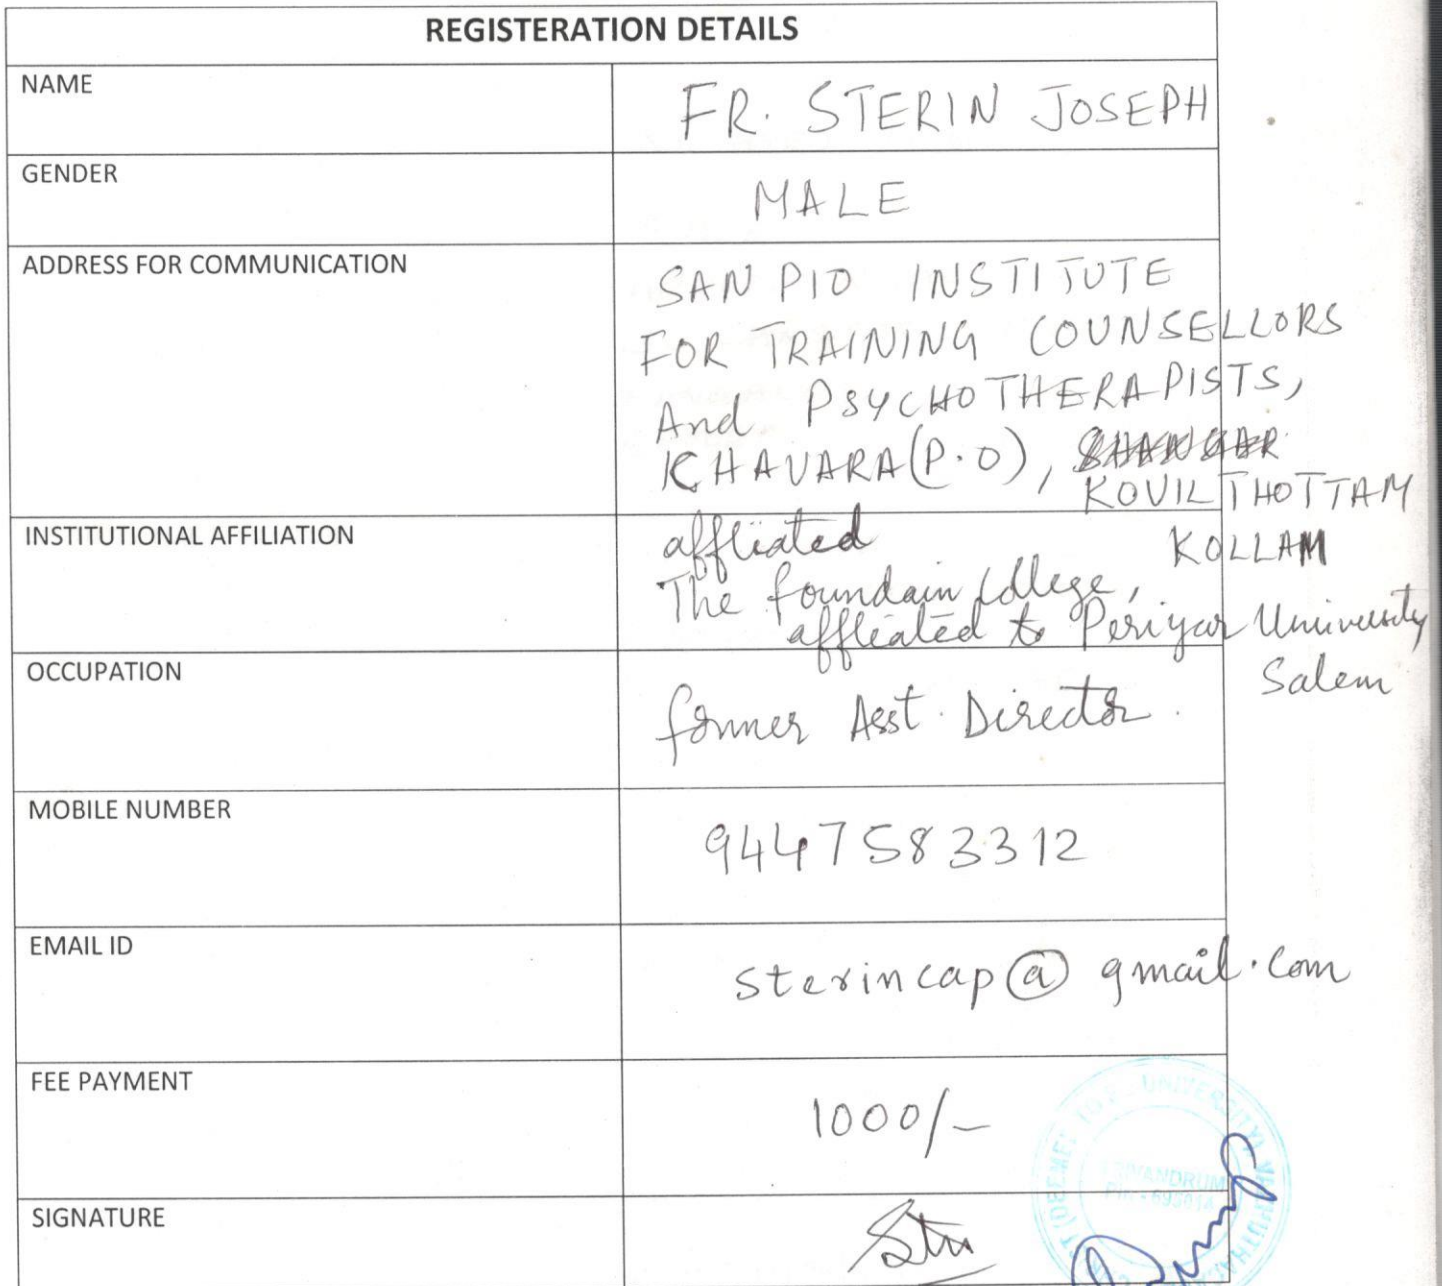 REGISTERATION DETAILS
NAME
FR. STERIN JOSEPH
GENDER
MALE
ADDRESS FOR COMMUNICATION
SAN PIO INSTITUTE
FOR TRAINING COUNSELLORS
And PSYCHOTHERAPISTS,
KHAVARA (P.O),
KOVILTHOTTAM
KOLLAM
INSTITUTIONAL AFFILIATION
affliated
The foundain College,
affliated to Periyar University
Salem
OCCUPATION
former Asst. Director.
MOBILE NUMBER
9447583312
EMAIL ID
sterincap@gmail.com
FEE PAYMENT
1000/-
SIGNATURE
UNIVERSITY
TRIVANDRUM